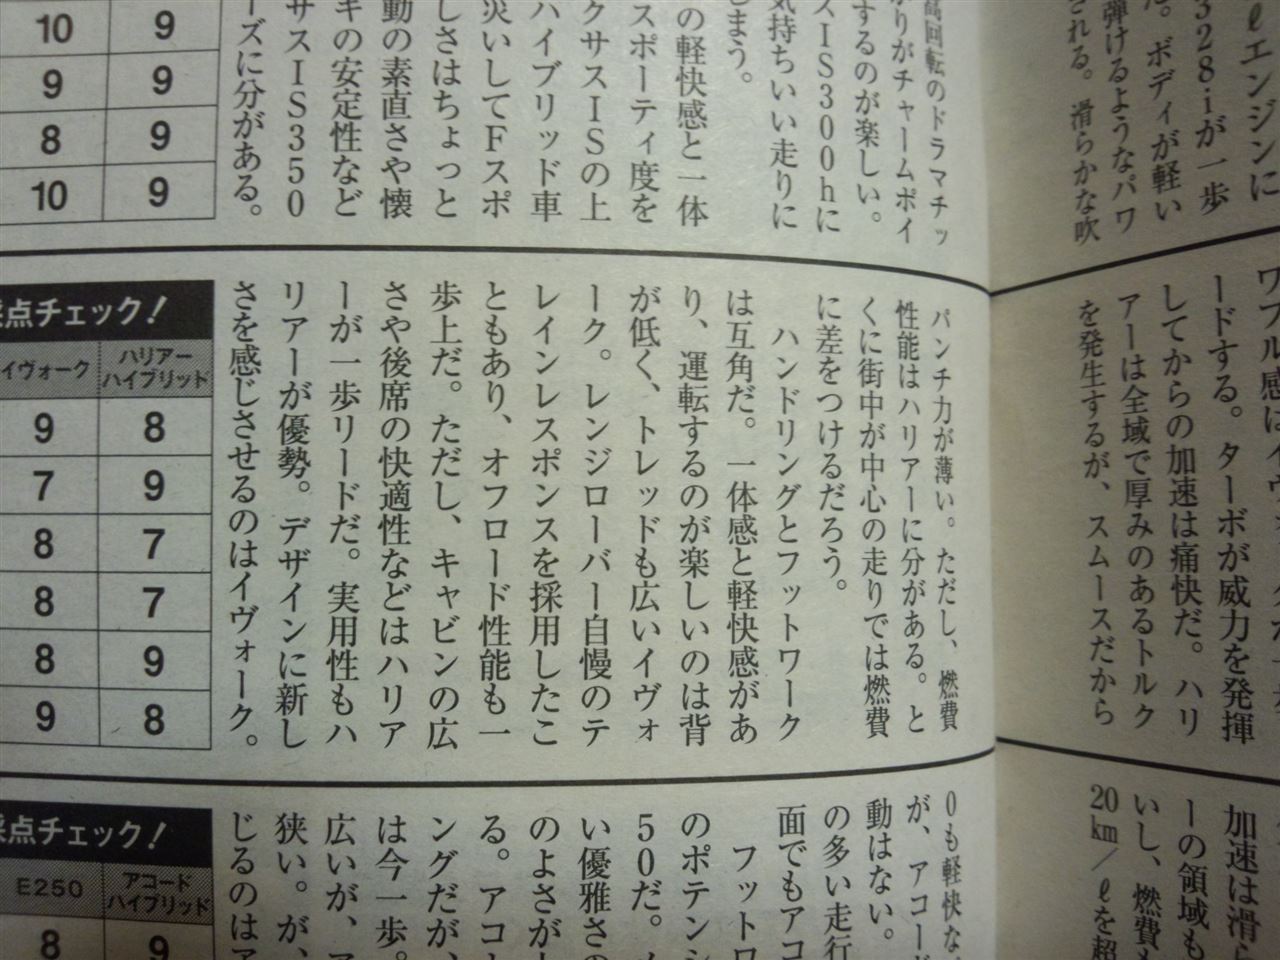 ℓエンジンに
328iが一歩
だ。ボディが軽い
弾けるようなパワ
される。滑らかな吹
高回転のドラマチッ
がりがチャームポイ
するのが楽しい。
スIS300hに
気持ちいい走りに
しまう。
の軽快感と一体
スポーティ度を
クサスISの上
ハイブリッド車
災いしてFスポ
しさはちょっと
動の素直さや懐
キの安定性など
サスIS350
ーズに分がある。
10 9
9 9
8 9
10 9
ードする。ターボが威力を発揮
してからの加速は痛快だ。ハリ
アーは全域で厚みのあるトルク
を発生するが、スムースだから
パンチ力が薄い。ただし、燃費
性能はハリアーに分がある。と
くに街中が中心の走りでは燃費
に差をつけるだろう。
ハンドリングとフットワーク
は互角だ。一体感と軽快感があ
り、運転するのが楽しいのは背
が低く、トレッドも広いイヴォ
ーク。レンジローバー自慢のテ
レインレスポンスを採用したこ
ともあり、オフロード性能も一
歩上だ。ただし、キャビンの広
さや後席の快適性などはハリア
ーが一歩リードだ。実用性もハ
リアーが優勢。デザインに新し
さを感じさせるのはイヴォーク。
採点チェック!
イヴォーク ハリアーハイブリッド
9 8
7 9
8 7
8 7
8 9
9 8
加速は滑ら
ーの領域も
いし、燃費も
20km/ℓを超
0も軽快な
が、アコード
動はない。
の多い走行
面でもアコ
フットワ
のポテンシ
50だ。
い優雅さの
のよさが
る。アコ
ングだが、
は今一歩。
広いが、
狭い。が、
じるのはア
採点チェック!
E250 アコードハイブリッド
8 9